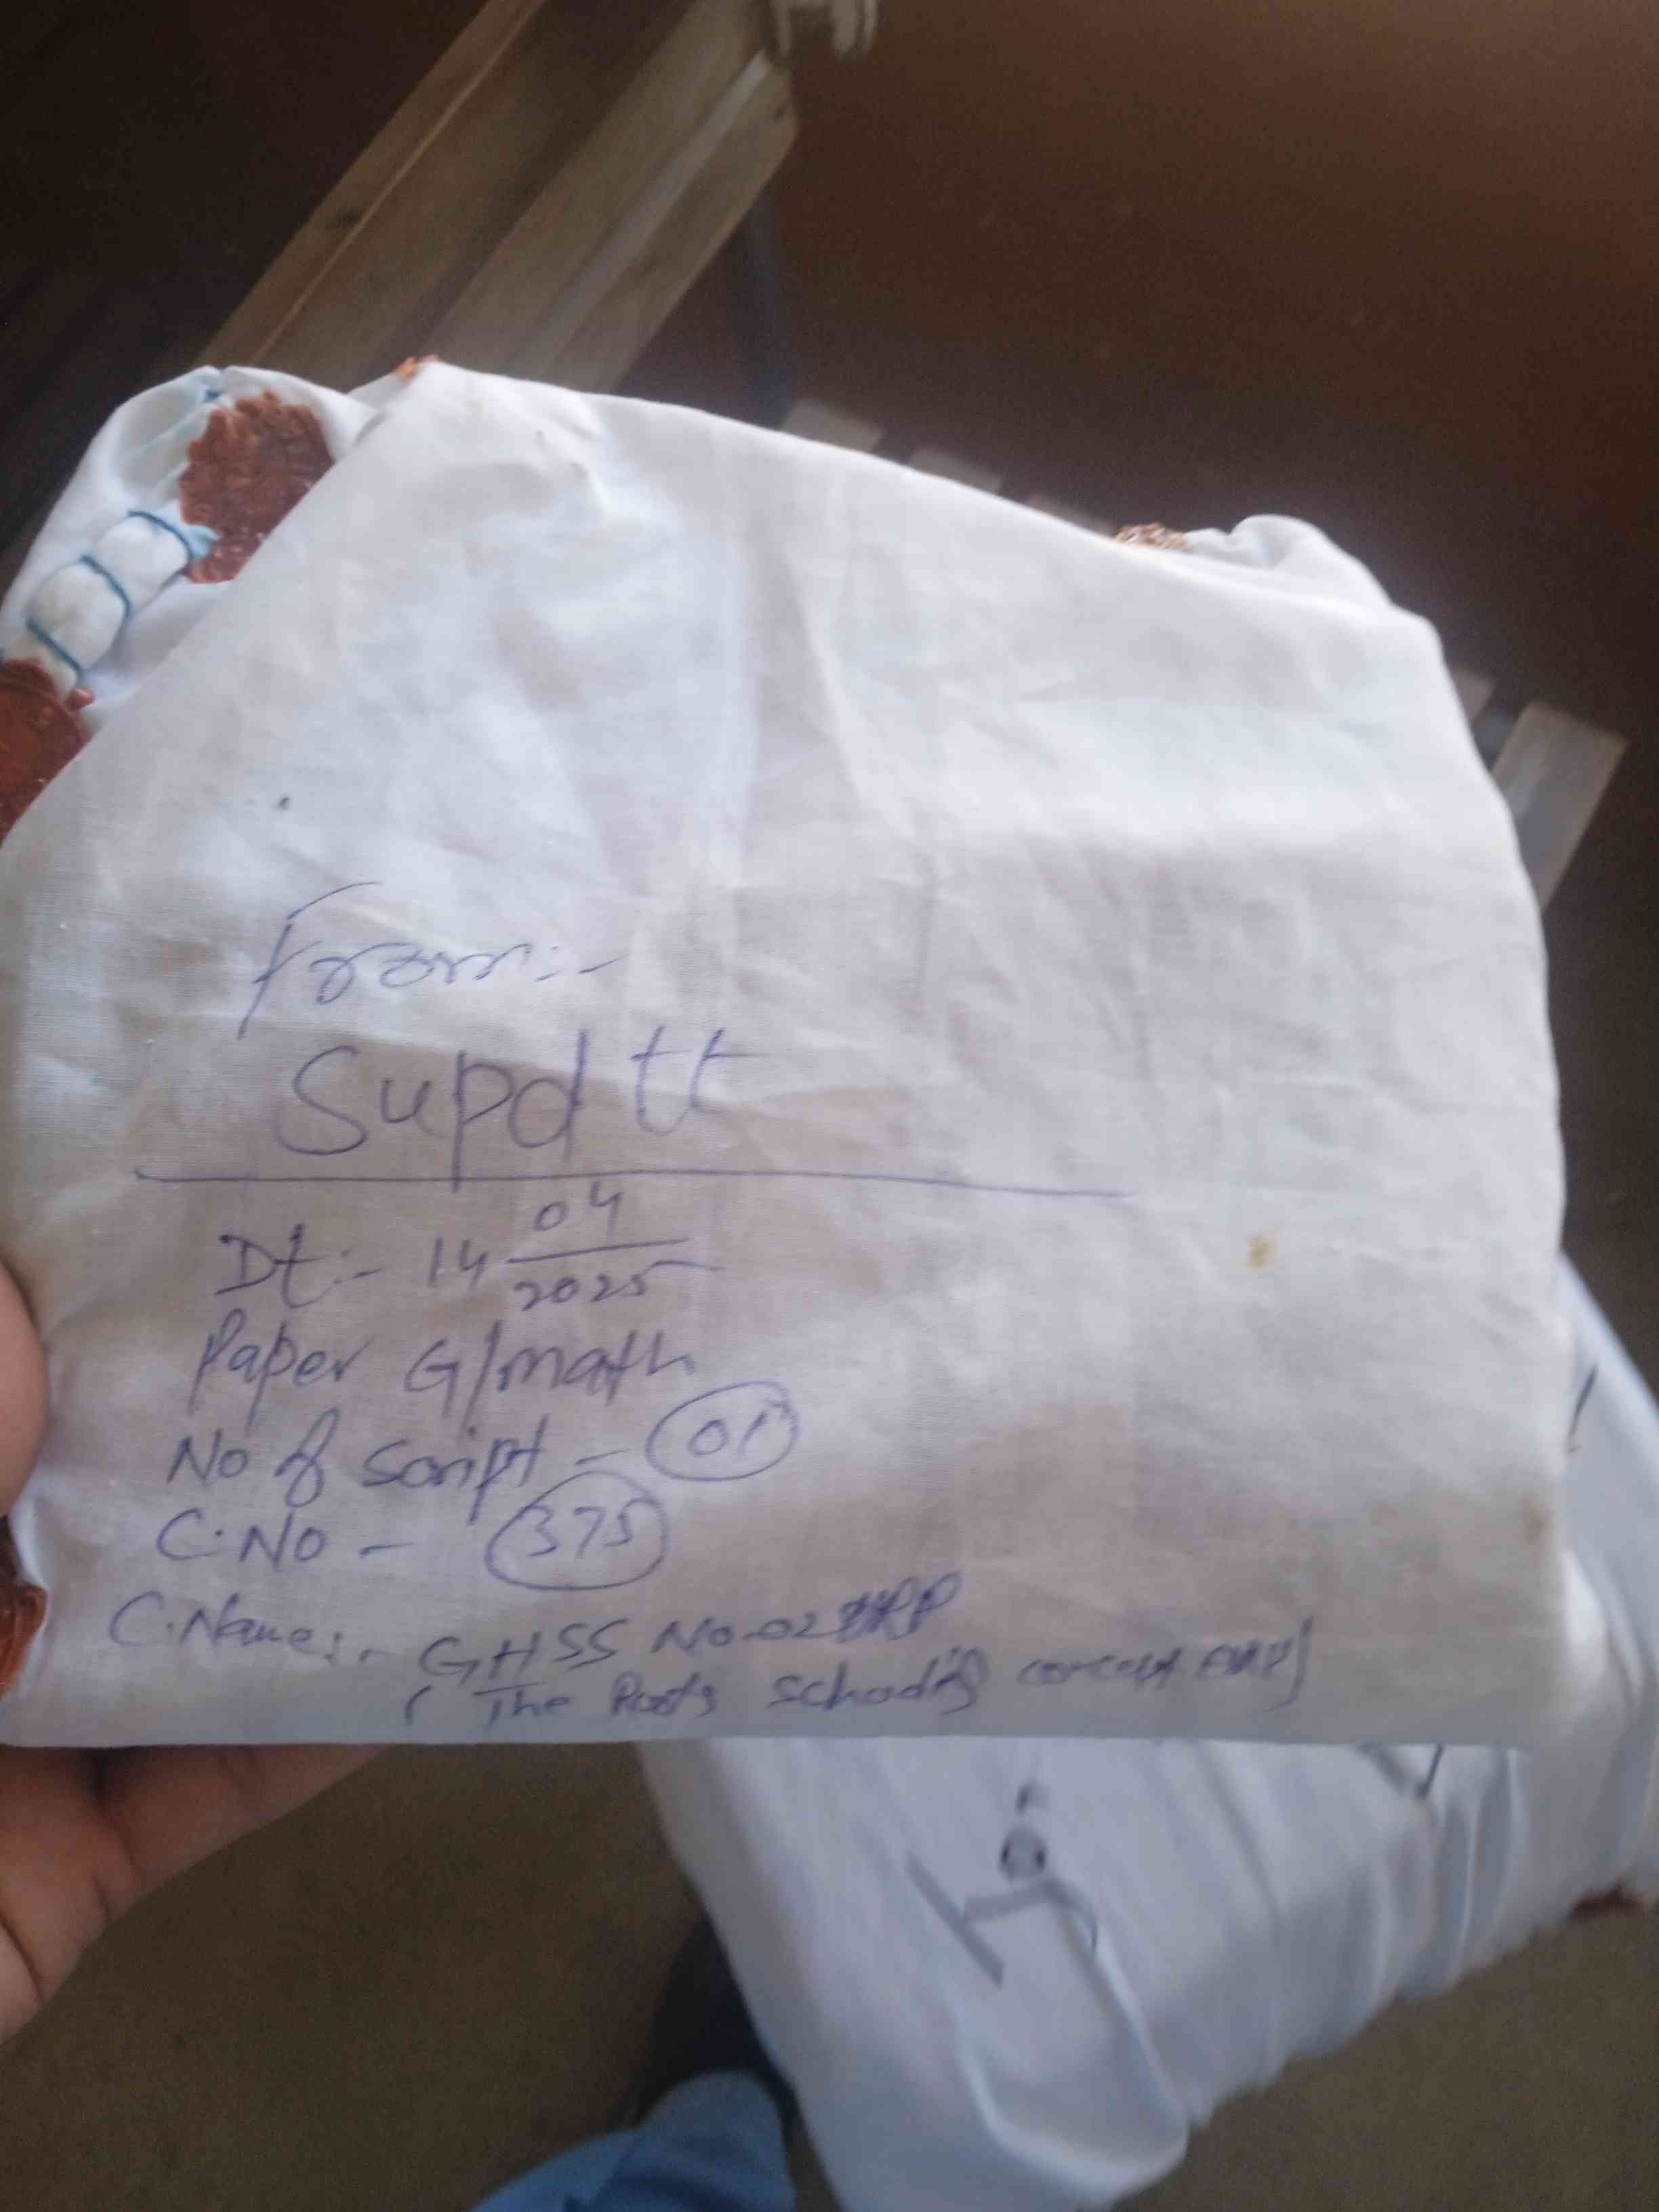 From:-
Supdtt
Dt:- 14 04/2025
Paper G/math
No of script - 01
C.No - 375
C.Name:- GHSS No-02
( The Roots schooling concept
To: